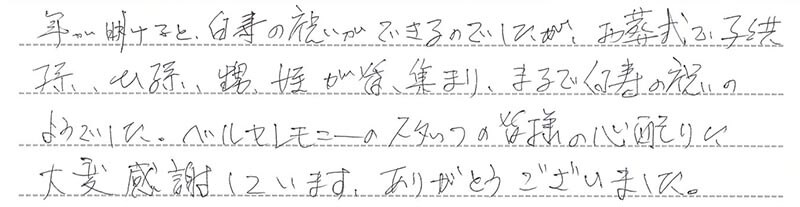 年が明けると、白寿の祝いができるのでしたが、お葬式で子供
孫、ひ孫、甥、姪が皆、集まり、まるで白寿の祝いの
ようでした。ベルセレモニーのスタッフの皆様の心配りに
大変感謝しています。ありがとうございました。